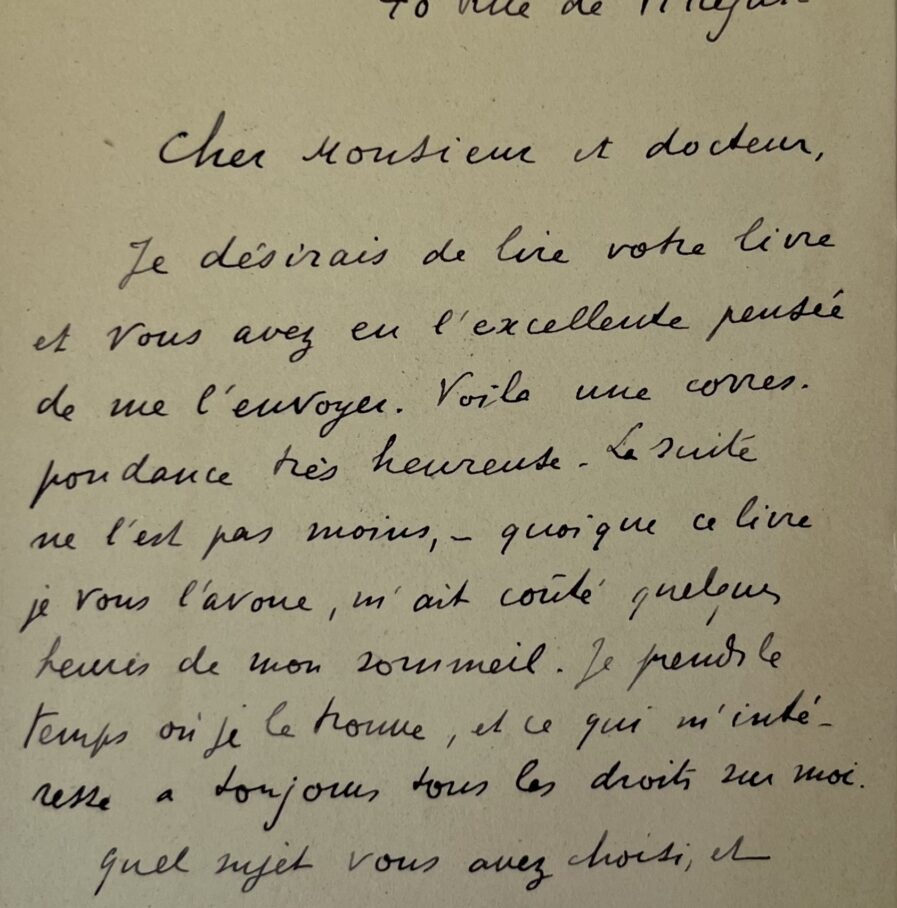 40 Rue de Ville
Cher Monsieur et docteur,
Je désirais de lire votre livre
et vous avez eu l'excellente pensée
de me l'envoyer. Voila une corres-
pondance très heureuse. La suite
ne l'est pas moins, – quoique ce livre
je vous l'avoue, m'ait coûté quelques
heures de mon sommeil. Je prends le
temps où je le trouve, et ce qui m'inté-
resse a toujours tous les droits sur moi.
Quel sujet vous avez choisi, et